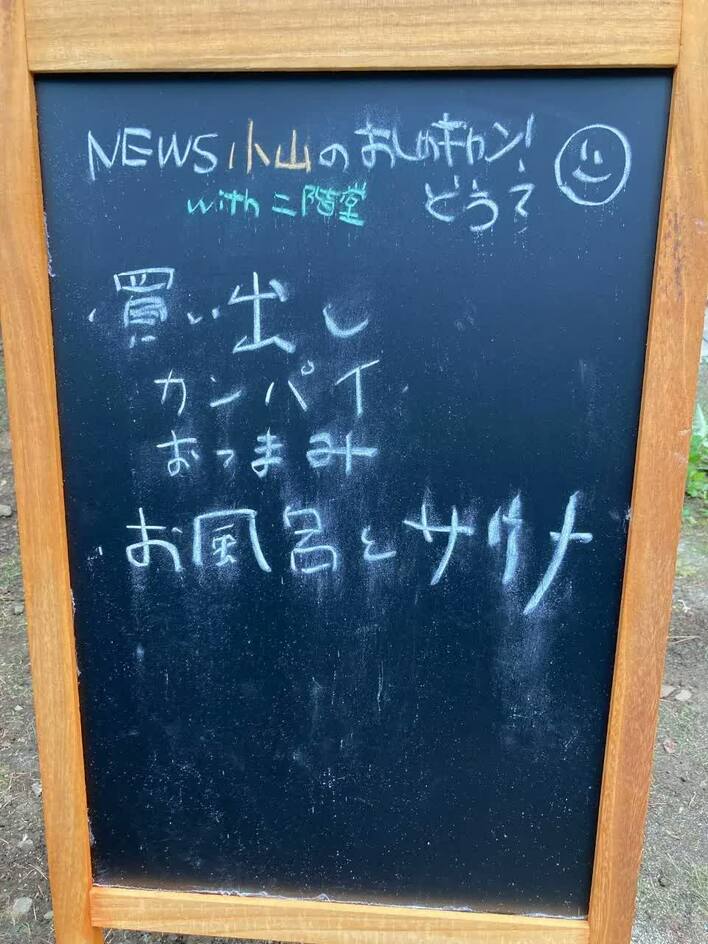 NEWS小山のおしめキャン!
with 二階堂 どう?
・買い出し
カンパイ
おつまみ
・お風呂とサウナ